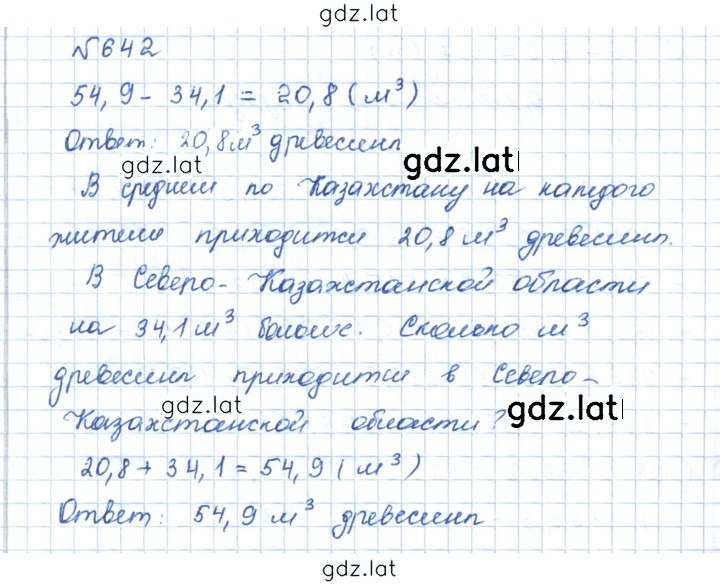 gdz.lat
№642
54,9 - 34,1 = 20,8 (м³)
Ответ: 20,8м³ древесины
gdz.lat gdz.lat
В среднем по Казахстану на каждого
жителя приходится 20,8 м³ древесины.
В Северо-Казахстанской области
на 34,1 м³ больше. Сколько м³
древесины приходится в Северо-
gdz.lat gdz.lat
Казахстанской области?
20,8 + 34,1 = 54,9 (м³)
Ответ: 54,9 м³ древесины
gdz.lat